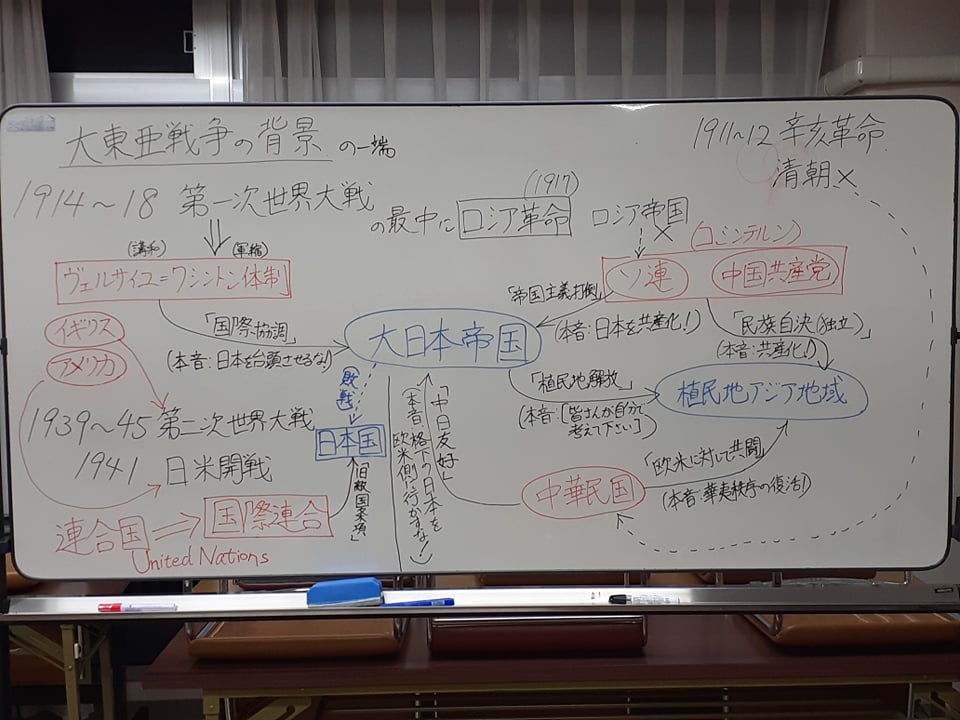 大東亜戦争の背景 の一端
1911~12 辛亥革命
清朝×
1914~18 第一次世界大戦
の最中に ロシア革命
(1917)
ロシア帝国
×
(講和)
(軍縮)
ヴェルサイユ=ワシントン体制
(コミンテルン)
ソ連
中国共産党
イギリス
アメリカ
「国際協調」
(本音:日本を台頭させるな!)
大日本帝国
「帝国主義打倒」
(本音:日本を共産化!)
「民族自決(独立)」
(本音:共産化!)
「植民地解放」
(本音:[皆さんが自分で
考えて下さい])
植民地アジア地域
1939~45 第二次世界大戦
1941 日米開戦
(敗戦)
日本国
「旧敵国条項」
「中日友好」
(本音:格下の日本を
欧米側に行かすな!)
中華民国
「欧米に対して共闘」
(本音:華夷秩序の復活!)
連合国⇒国際連合
United Nations